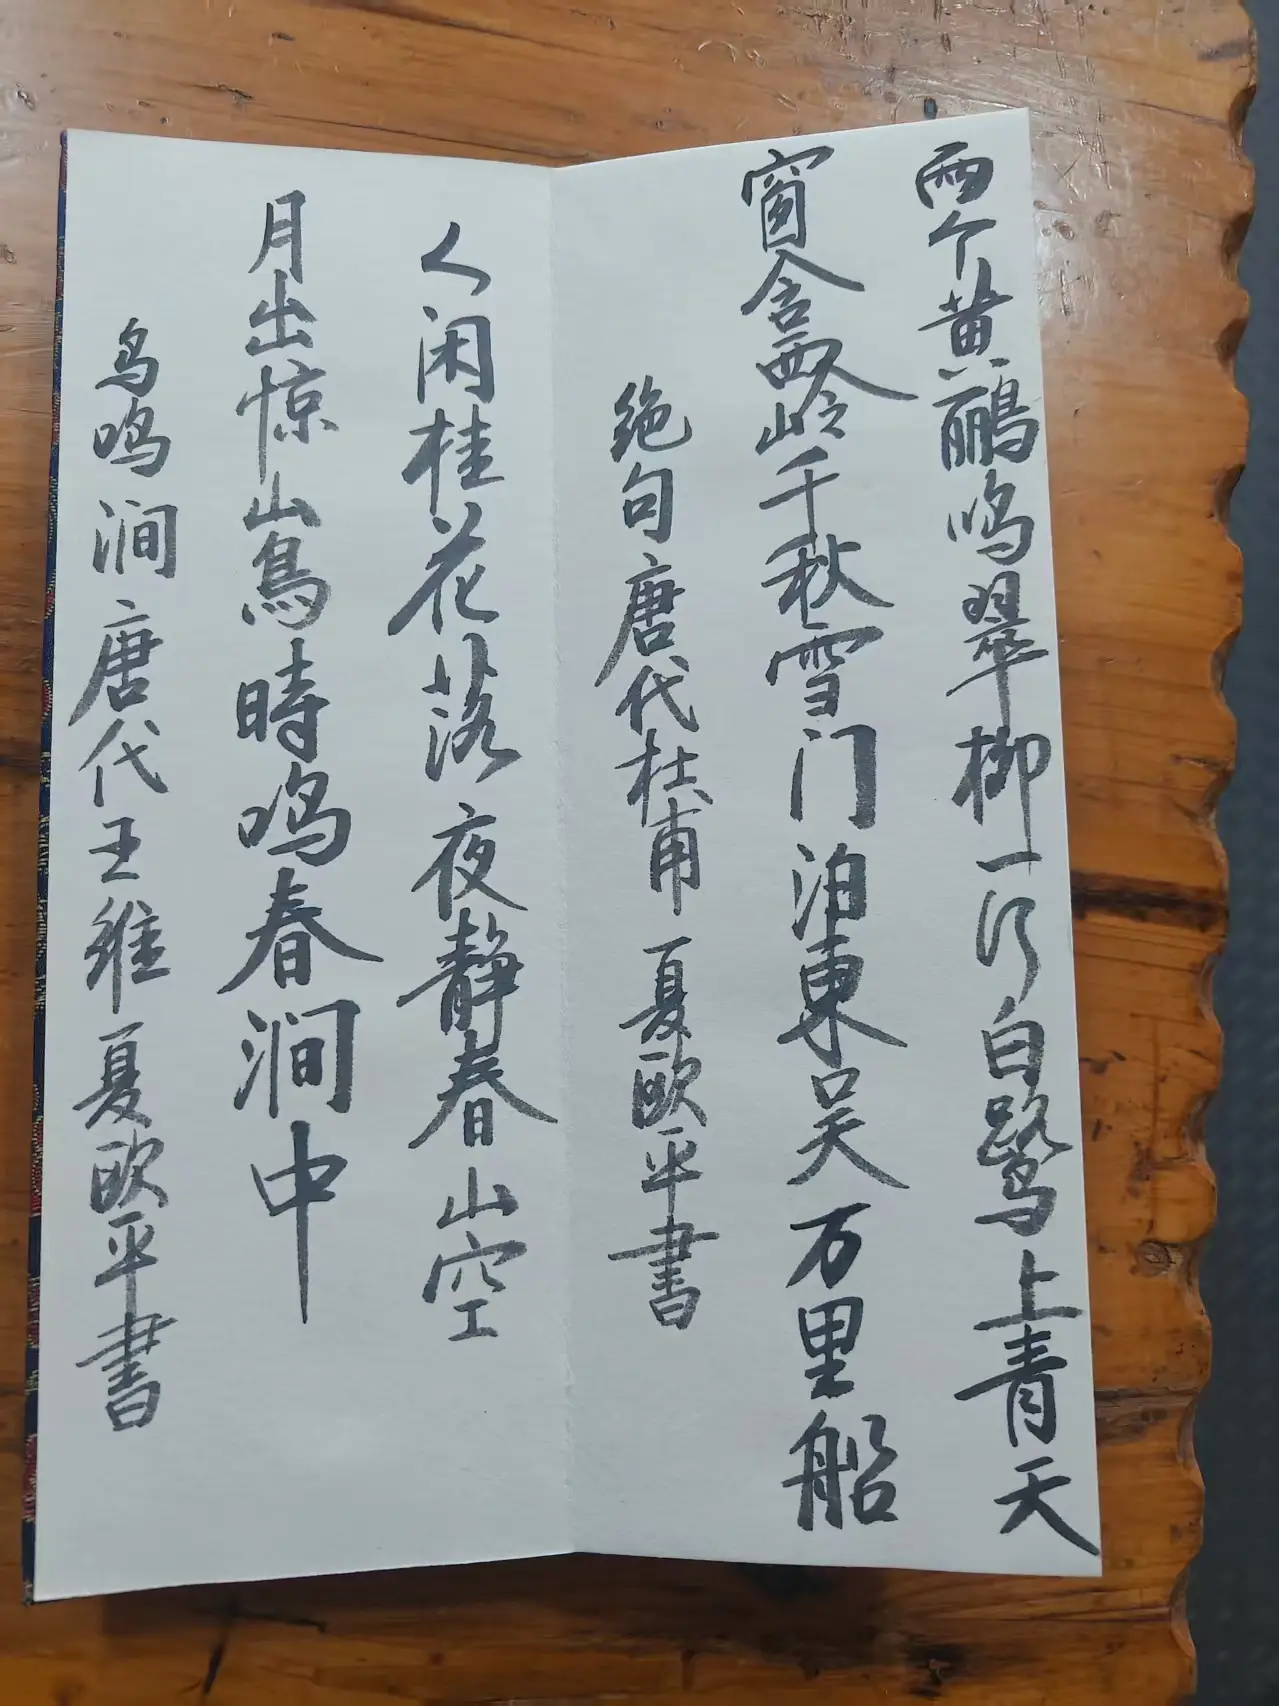 两个黄鹂鸣翠柳一行白鹭上青天
窗含西岭千秋雪门泊東吴万里船
绝句唐代杜甫 夏欧平書
人闲桂花落夜静春山空
月出惊山鳥時鸣春涧中
鸟鸣涧唐代王維夏欧平書